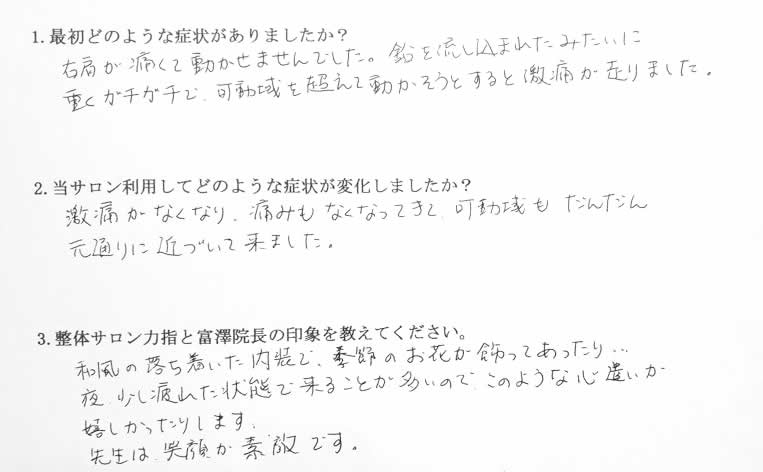 1.最初どのような症状がありましたか？
右肩が痛くて動かせませんでした。鉛を流し込まれたみたいに
重くガチガチで、可動域を超えて動かそうとすると激痛が走りました。
2.当サロン利用してどのような症状が変化しましたか？
激痛がなくなり、痛みもなくなってきて、可動域もだんだん
元通りに近づいて来ました。
3.整体サロン力指と富澤院長の印象を教えてください。
和風の落ち着いた内装で、季節のお花が飾ってあったり…
夜、少し疲れた状態で来ることが多いので、このような心遣いが
嬉しかったりします。
先生は、笑顔が素敵です。